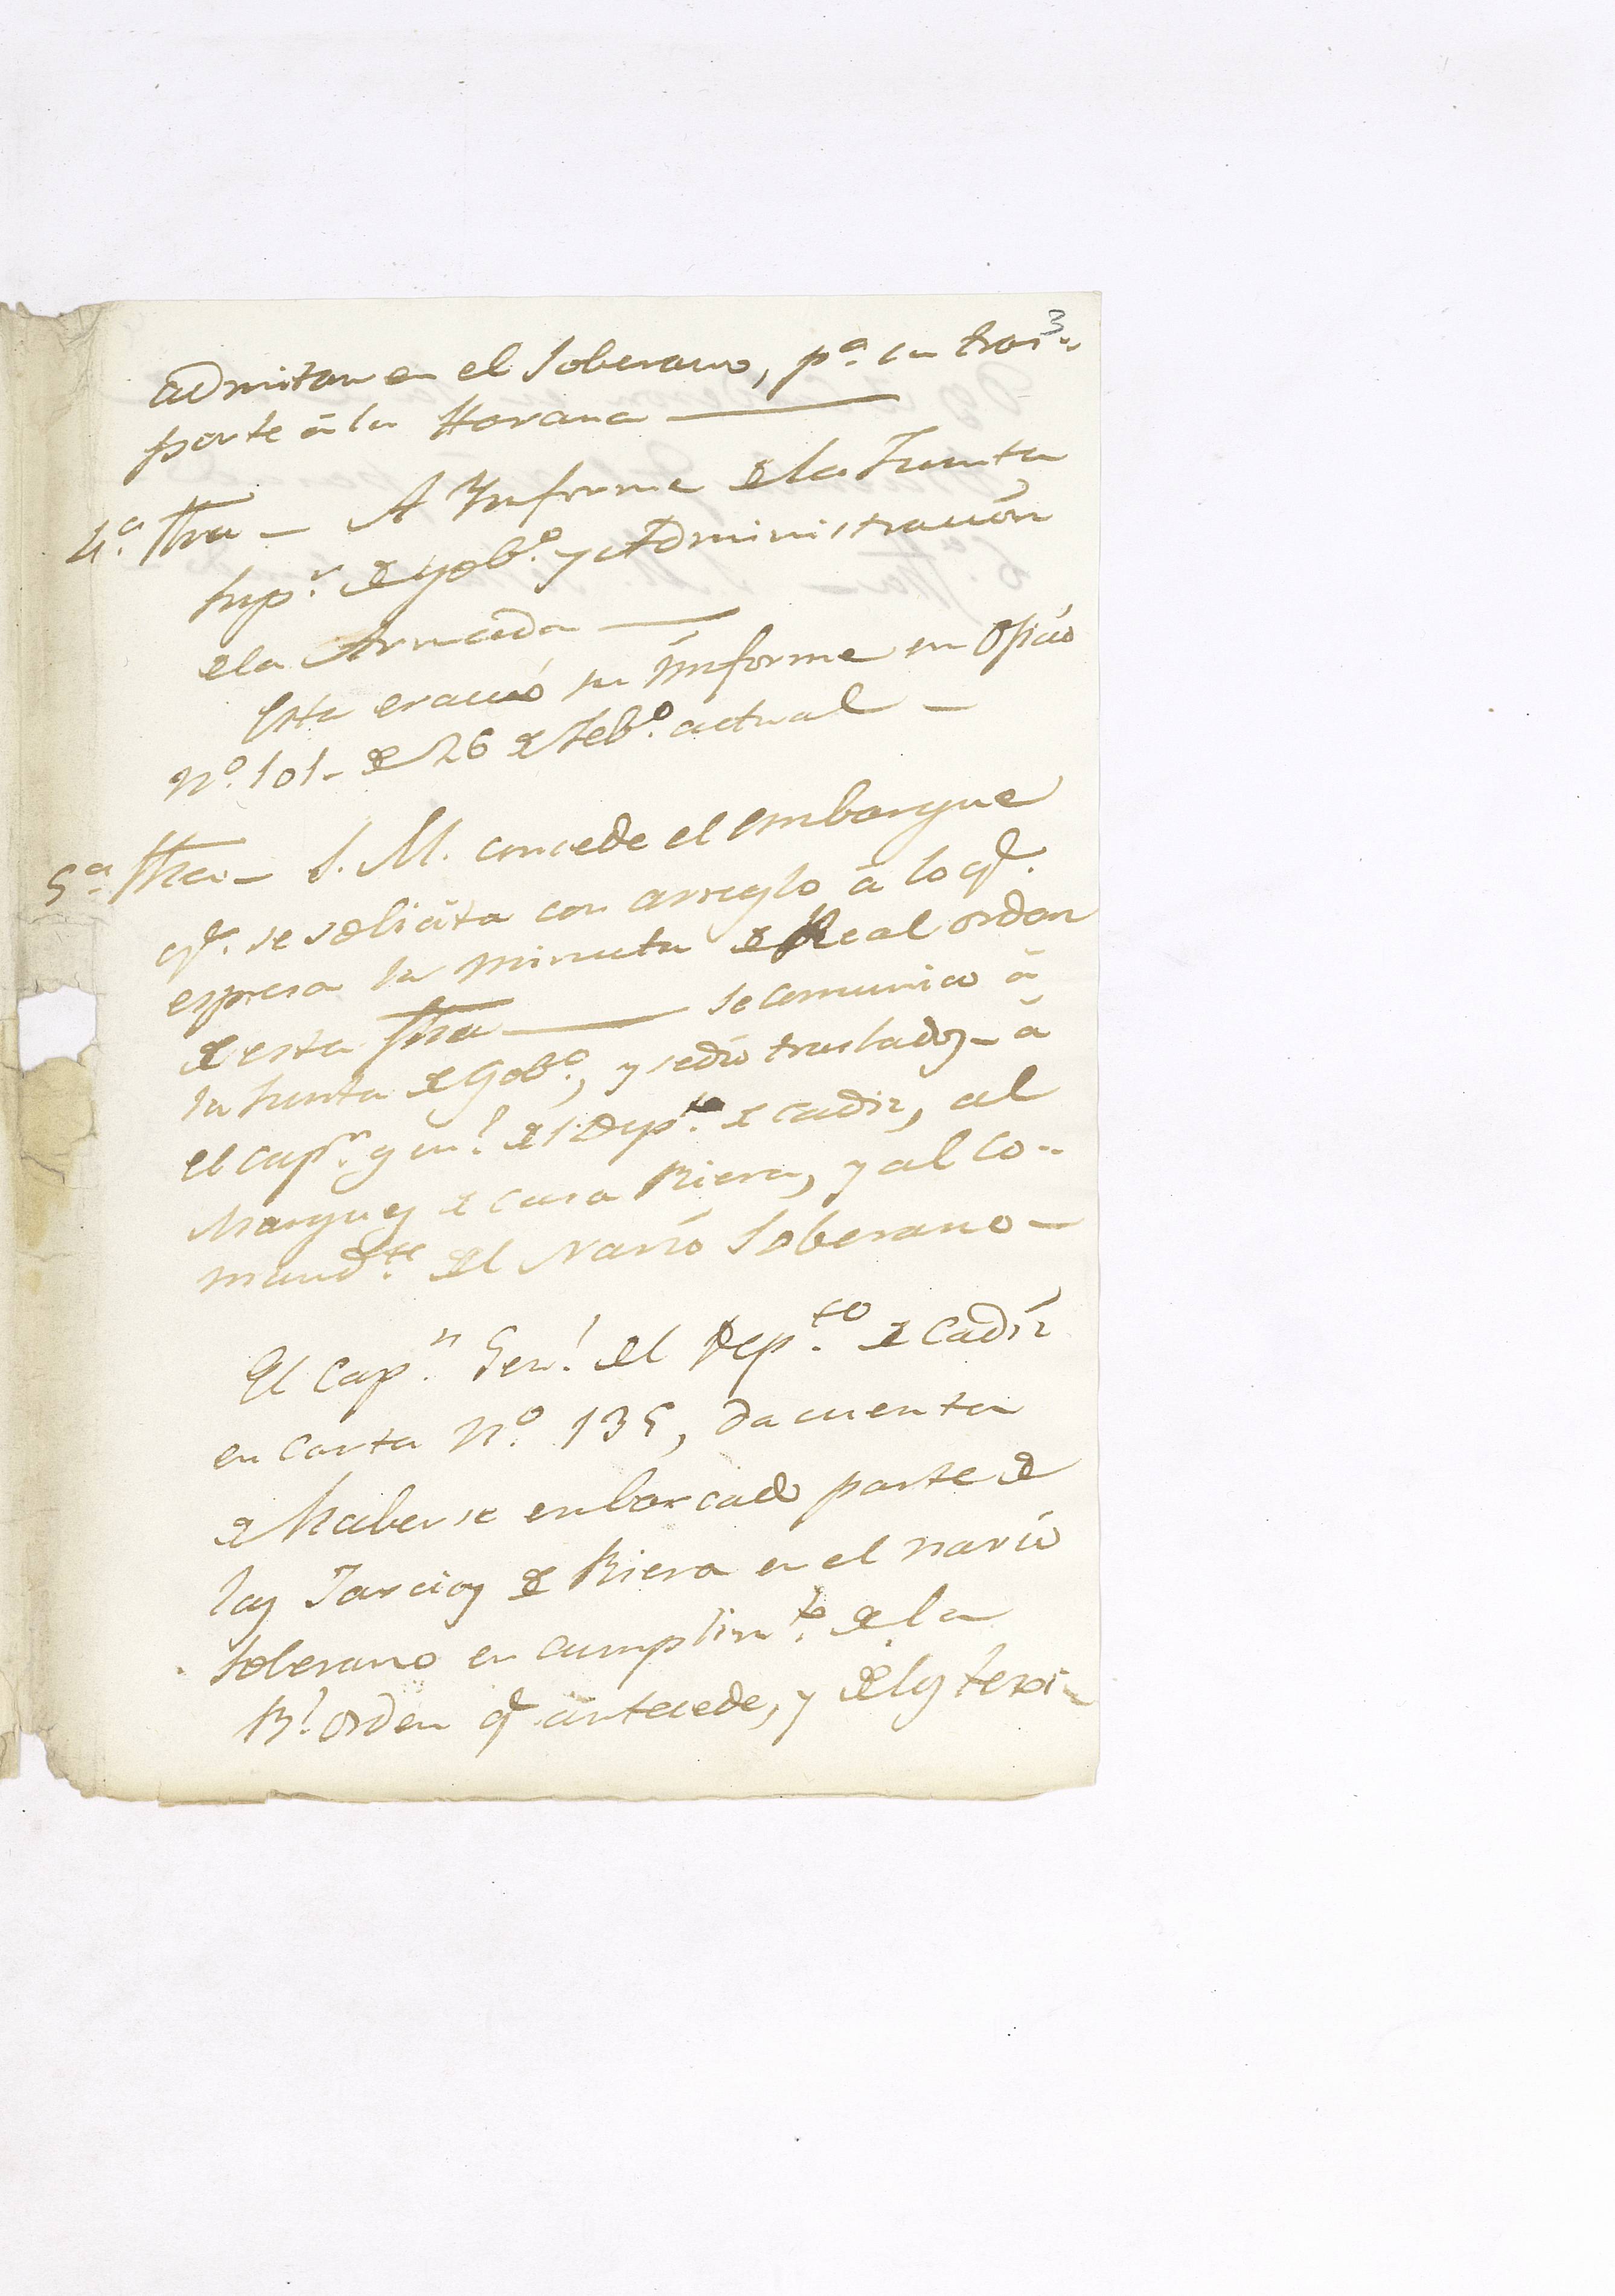 3
admitan en el Soberano, pª. su tras-
porte á la Havana —
4ª. fha — A Ynforme de la Junta
Supr. de gobº. y Administración
de la Armada —
Esta evacuó su ynforme en Oficio
nº. 101 - de 26 de Febº. actual —
5ª. fha — S. M. concede el embarque
q.e se solicita con arreglo á lo q.e
espresa la minuta de Real orden
de esta fha — se comunicó á
la Junta de Gobº., y se dió traslados - á
el capn. genl. del Depto. de Cadiz, al
Marques de Casa Riera, y al Co-
mandte. del Navío Soberano —
El Capn. Genl. del Depto. de Cadiz
en carta Nº. 135, da cuenta
de haberse enbarcado parte de
las Jarcias de Riera en el navío
Soberano en cumplimto. de la
Rl. orden q.e antecede, y de los